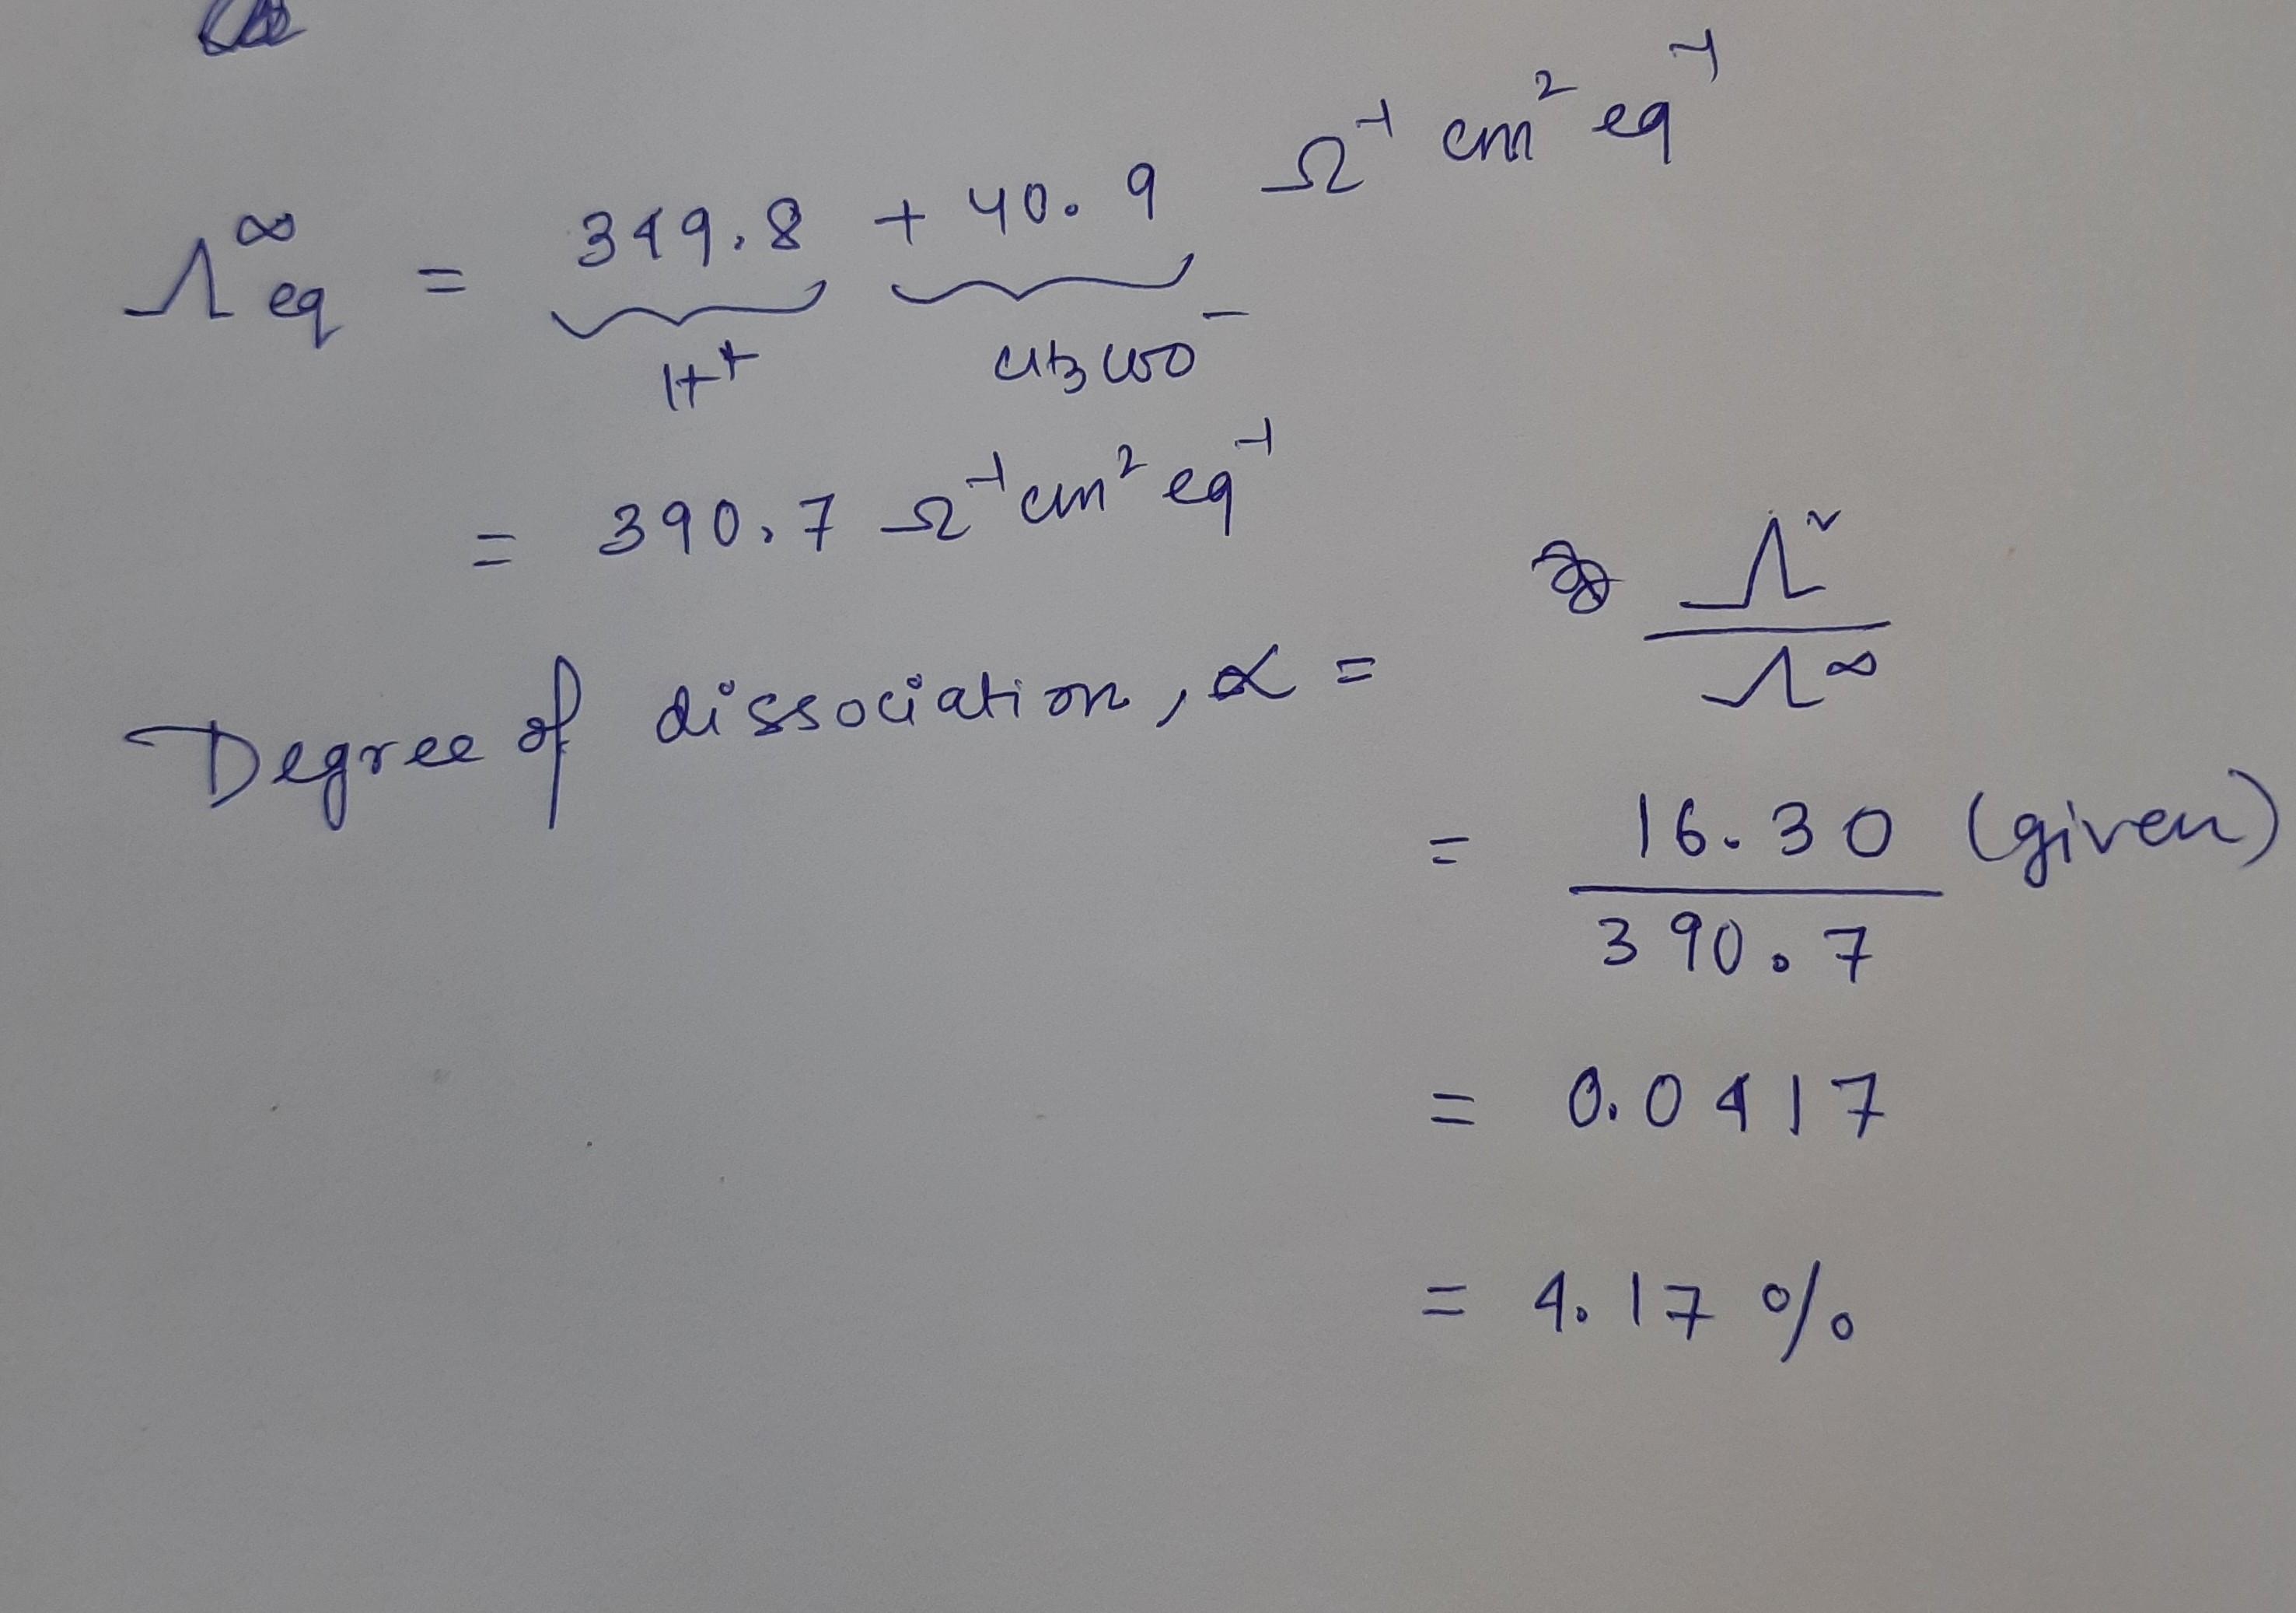 Λ∞eq = 349.8 + 40.9 Ω⁻¹ cm² eq⁻¹
H⁺ CH3COO⁻
= 390.7 Ω⁻¹ cm² eq⁻¹
Degree of dissociation, α = Λᵛ / Λ∞
= 16.30 (given) / 390.7
= 0.0417
= 4.17 %